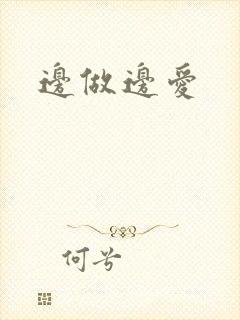 邊做邊愛
何兮